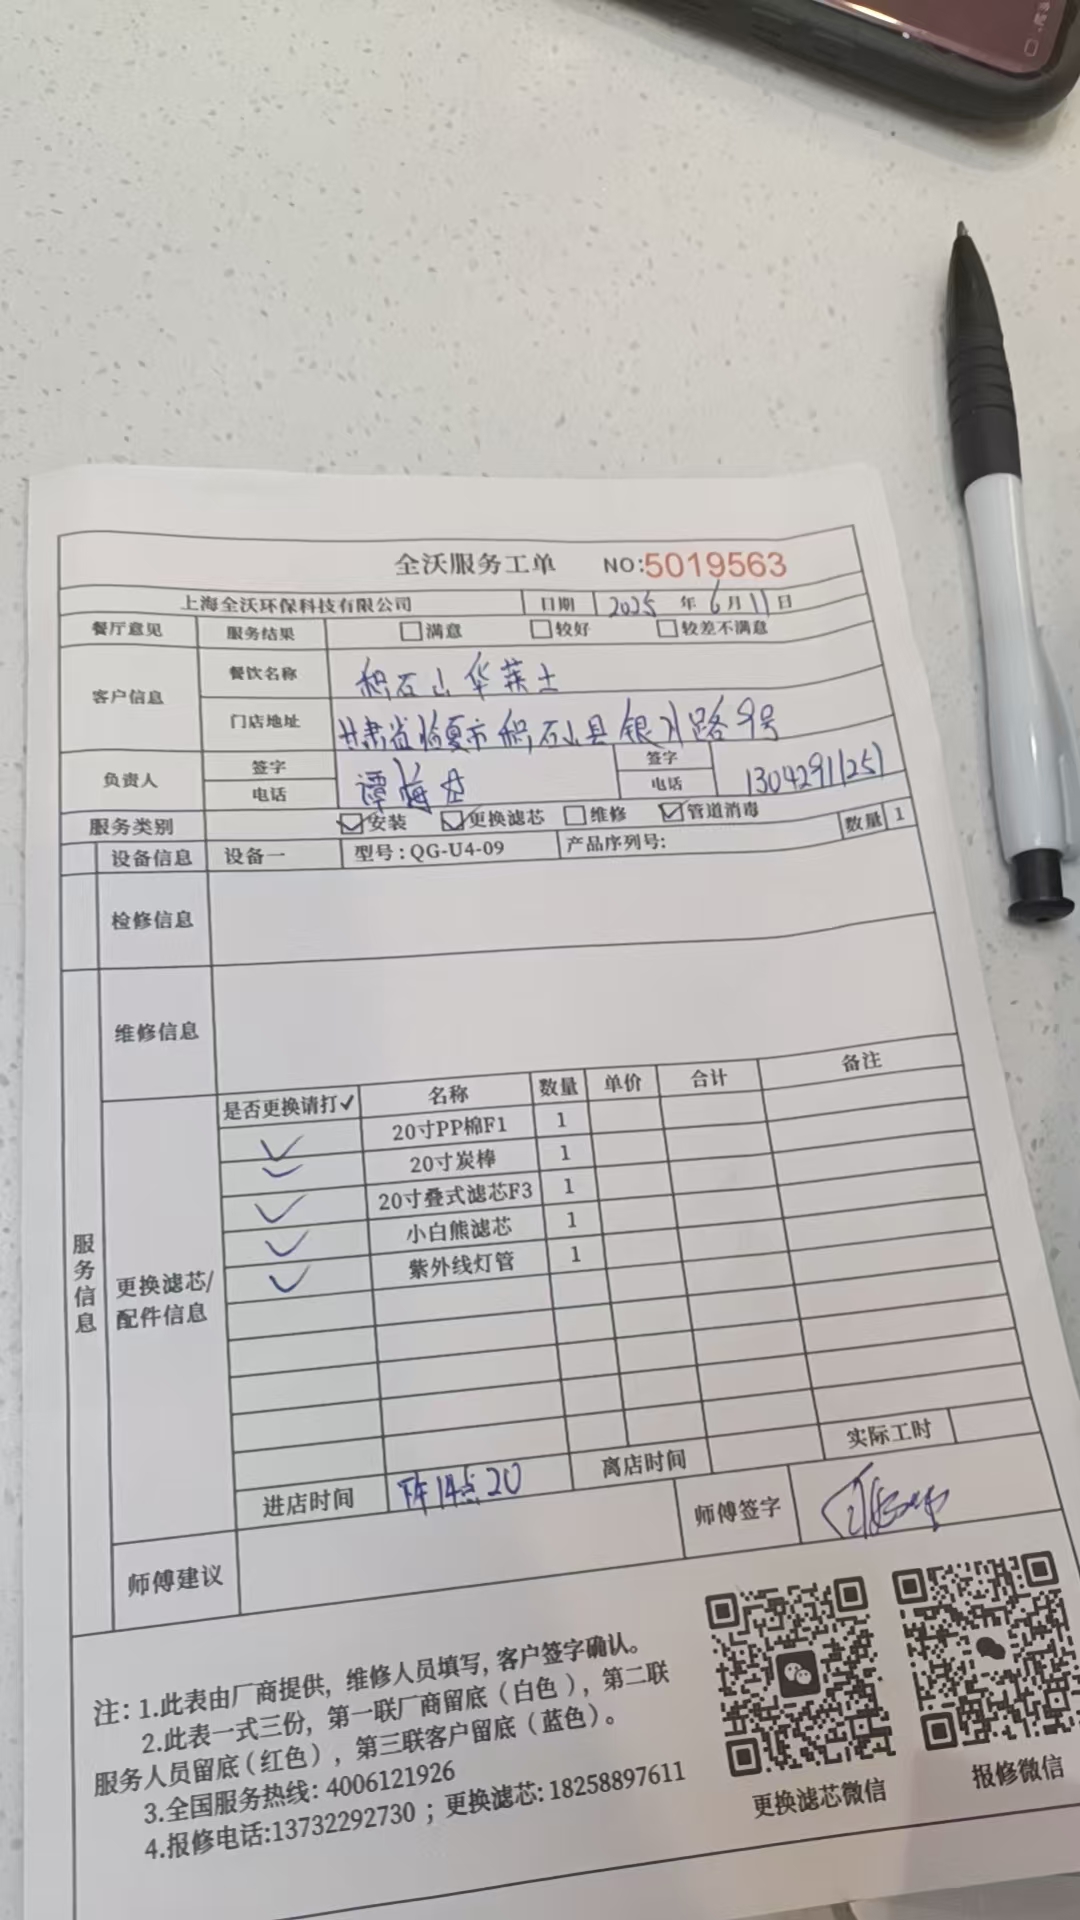 全沃服务工单 NO:5019563
上海全沃环保科技有限公司 日期 2025 年 6 月 11 日
餐厅意见 服务结果 □满意 □较好 □较差不满意
客户信息 餐饮名称 积石山华莱士
门店地址 甘肃省临夏市积石山县银川路9号
负责人 签字 电话 谭海 签字 电话 13042911251
服务类别 ☑安装 ☑更换滤芯 □维修 ☑管道消毒
设备信息 设备一 型号:QG-U4-09 产品序列号: 数量 1
检修信息
维修信息
服务信息
更换滤芯/配件信息
是否更换请打✓ 名称 数量 单价 合计 备注
✓ 20寸PP棉F1 1
✓ 20寸炭棒 1
✓ 20寸叠式滤芯F3 1
✓ 小白熊滤芯 1
✓ 紫外线灯管 1
进店时间 下午14点20 离店时间 实际工时
师傅建议 师傅签字
注: 1.此表由厂商提供, 维修人员填写, 客户签字确认。
2.此表一式三份, 第一联厂商留底(白色), 第二联
服务人员留底(红色), 第三联客户留底(蓝色)。
3.全国服务热线: 4006121926
4.报修电话:13732292730 ; 更换滤芯: 18258897611
更换滤芯微信 报修微信